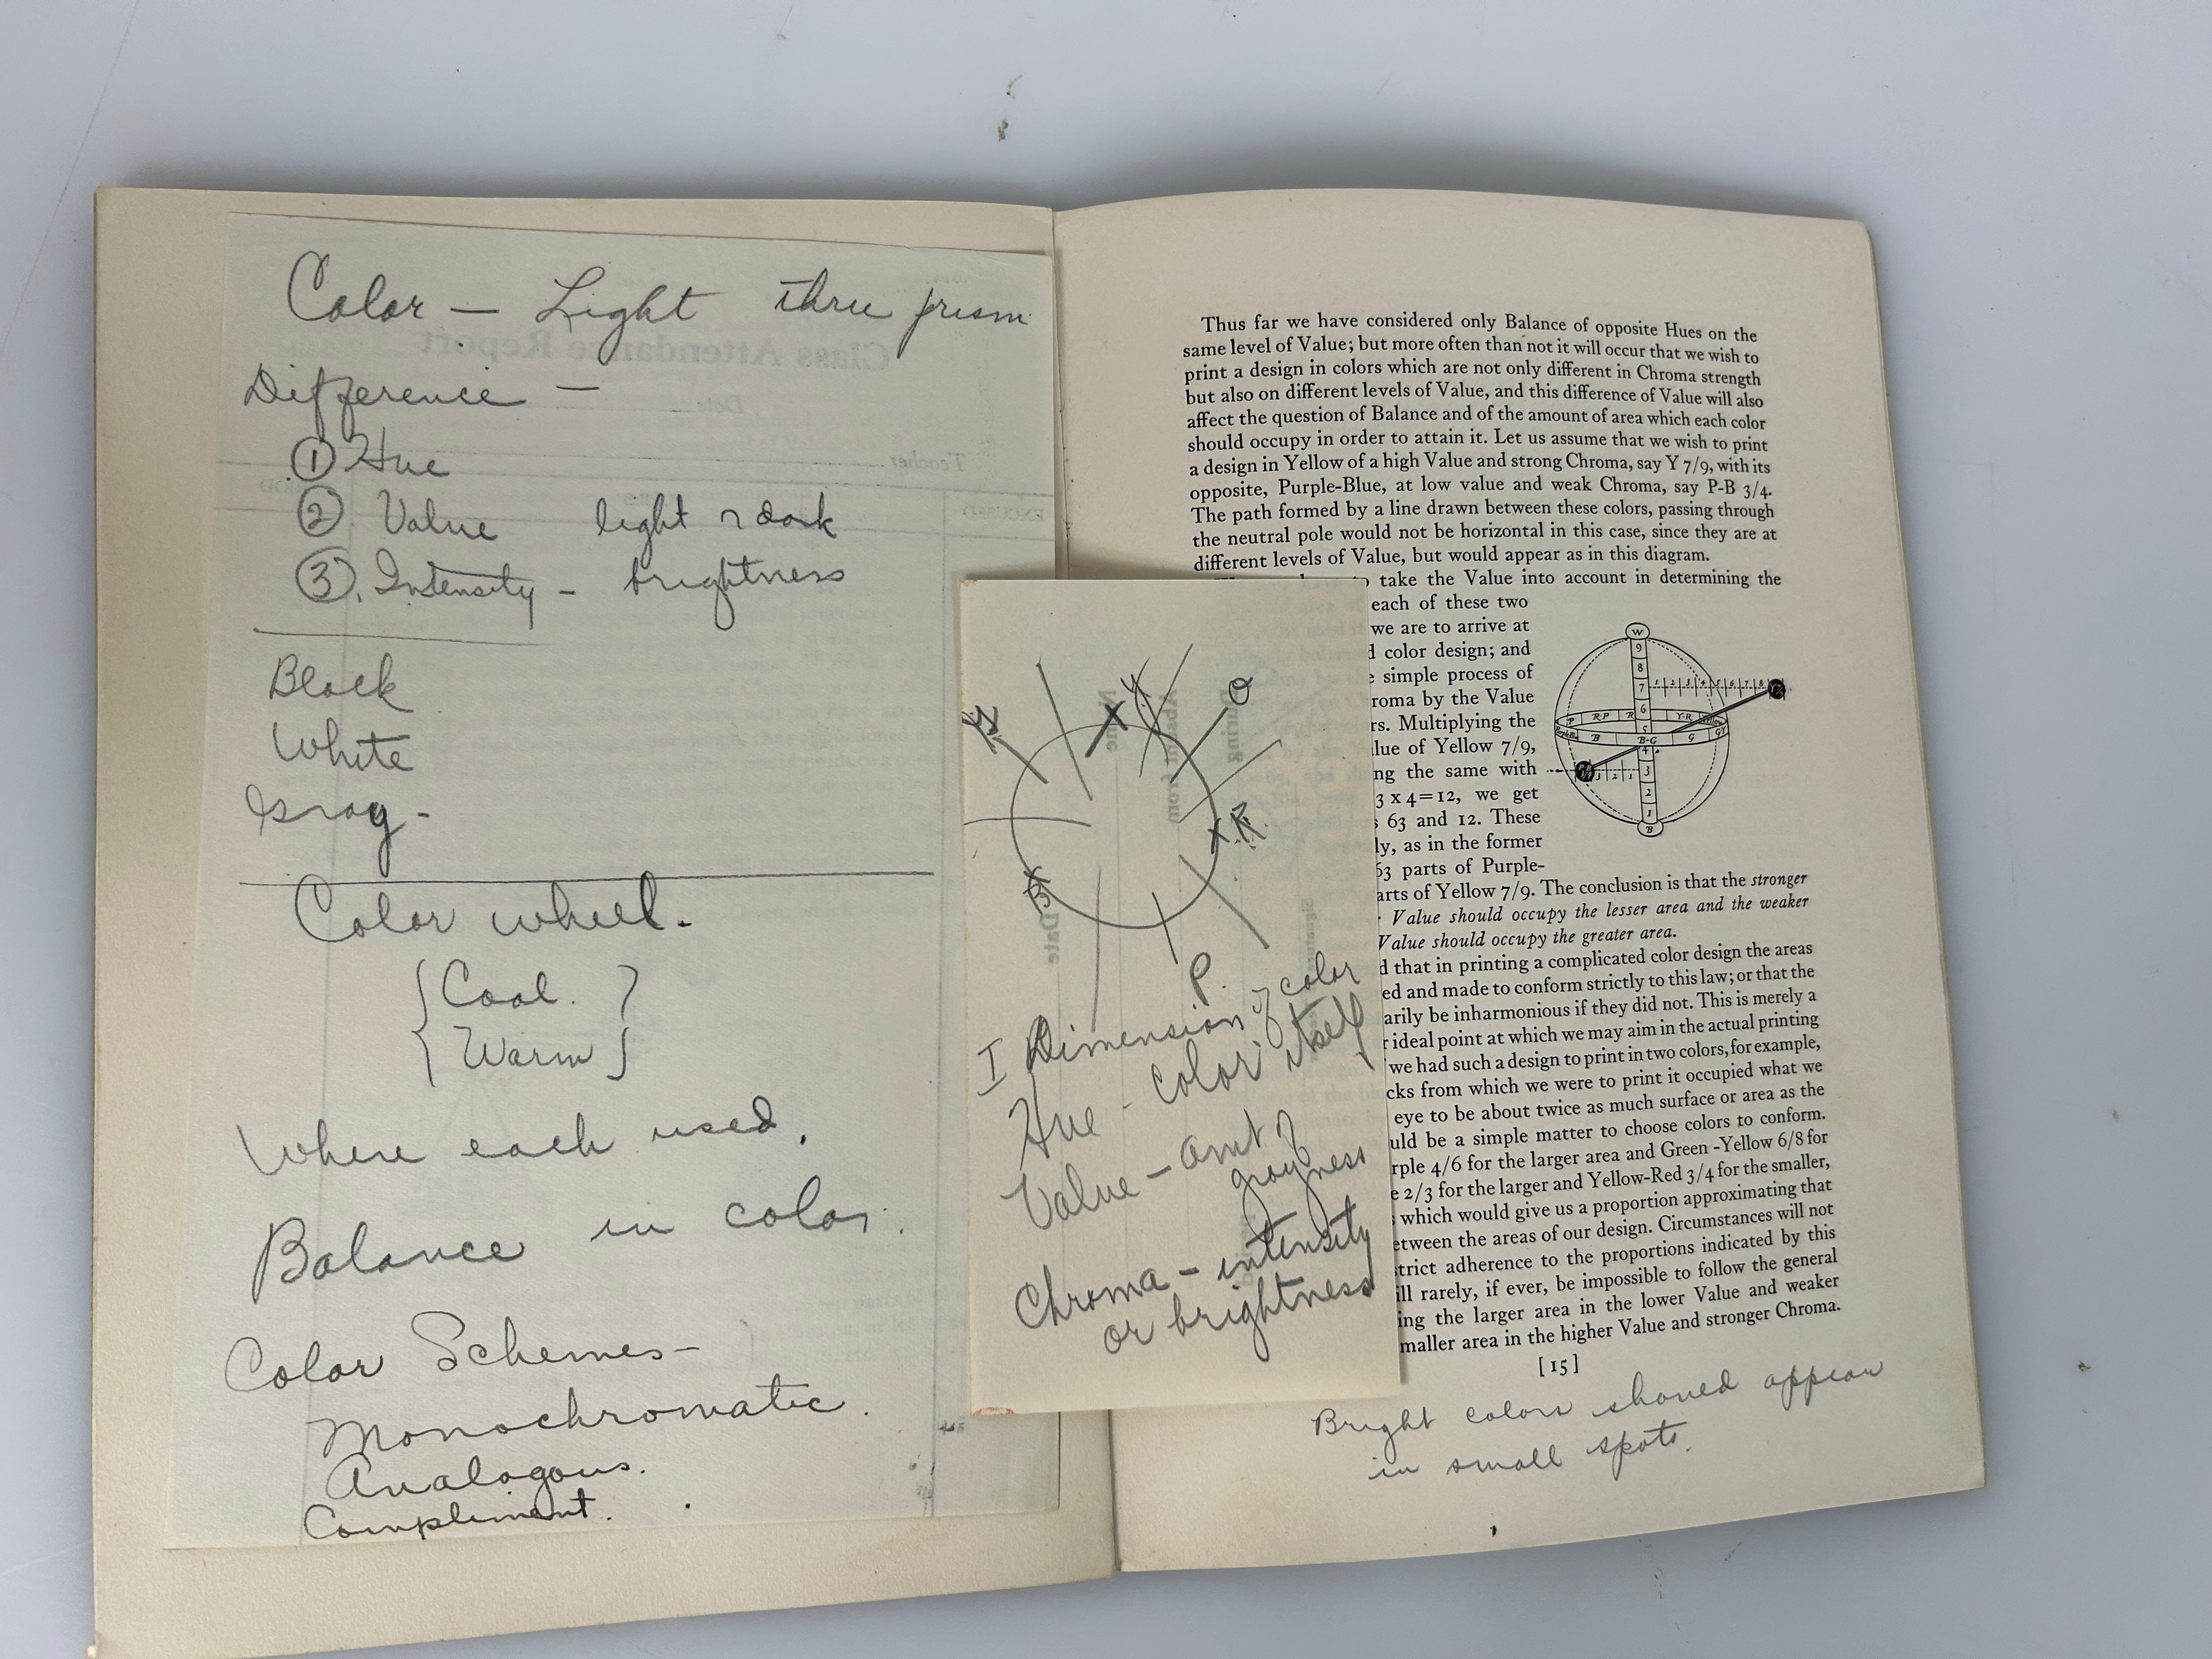 Color — Light thru prism
Difference —
① Hue
② Value light & dark
③. Intensity - brightness
Black
White
Gray -
Color wheel.
{Cool. }
{Warm}
Where each used.
Balance in color.
Color Schemes-
Monochromatic.
Analogous.
Compliment.
Class Attendance Report
Date
Teacher
EXCUSED
Y
O
R
B
P.
I Dimension of color
Hue - color itself
Value - amt of
grayness
Chroma - intensity
or brightness
Date
During
Absent from
Name
Thus far we have considered only Balance of opposite Hues on the
same level of Value; but more often than not it will occur that we wish to
print a design in colors which are not only different in Chroma strength
but also on different levels of Value, and this difference of Value will also
affect the question of Balance and of the amount of area which each color
should occupy in order to attain it. Let us assume that we wish to print
a design in Yellow of a high Value and strong Chroma, say Y 7/9, with its
opposite, Purple-Blue, at low value and weak Chroma, say P-B 3/4.
The path formed by a line drawn between these colors, passing through
the neutral pole would not be horizontal in this case, since they are at
different levels of Value, but would appear as in this diagram.
take the Value into account in determining the
each of these two
we are to arrive at
color design; and
simple process of
roma by the Value
rs. Multiplying the
lue of Yellow 7/9,
ng the same with
3 x 4=12, we get
63 and 12. These
ly, as in the former
63 parts of Purple-
arts of Yellow 7/9. The conclusion is that the stronger
Value should occupy the lesser area and the weaker
Value should occupy the greater area.
d that in printing a complicated color design the areas
ed and made to conform strictly to this law; or that the
arily be inharmonious if they did not. This is merely a
r ideal point at which we may aim in the actual printing
we had such a design to print in two colors, for example,
cks from which we were to print it occupied what we
eye to be about twice as much surface or area as the
uld be a simple matter to choose colors to conform.
rple 4/6 for the larger area and Green -Yellow 6/8 for
e 2/3 for the larger and Yellow-Red 3/4 for the smaller,
which would give us a proportion approximating that
etween the areas of our design. Circumstances will not
trict adherence to the proportions indicated by this
ill rarely, if ever, be impossible to follow the general
ing the larger area in the lower Value and weaker
maller area in the higher Value and stronger Chroma.
W
9
8
7 1 2 3 4 5 6 7 8
6
P R-P R Y-R Yellow
5
B B-G G GY
4
3 3 2 1
2
1
B
[15]
Bright colors should appear
in small spots.